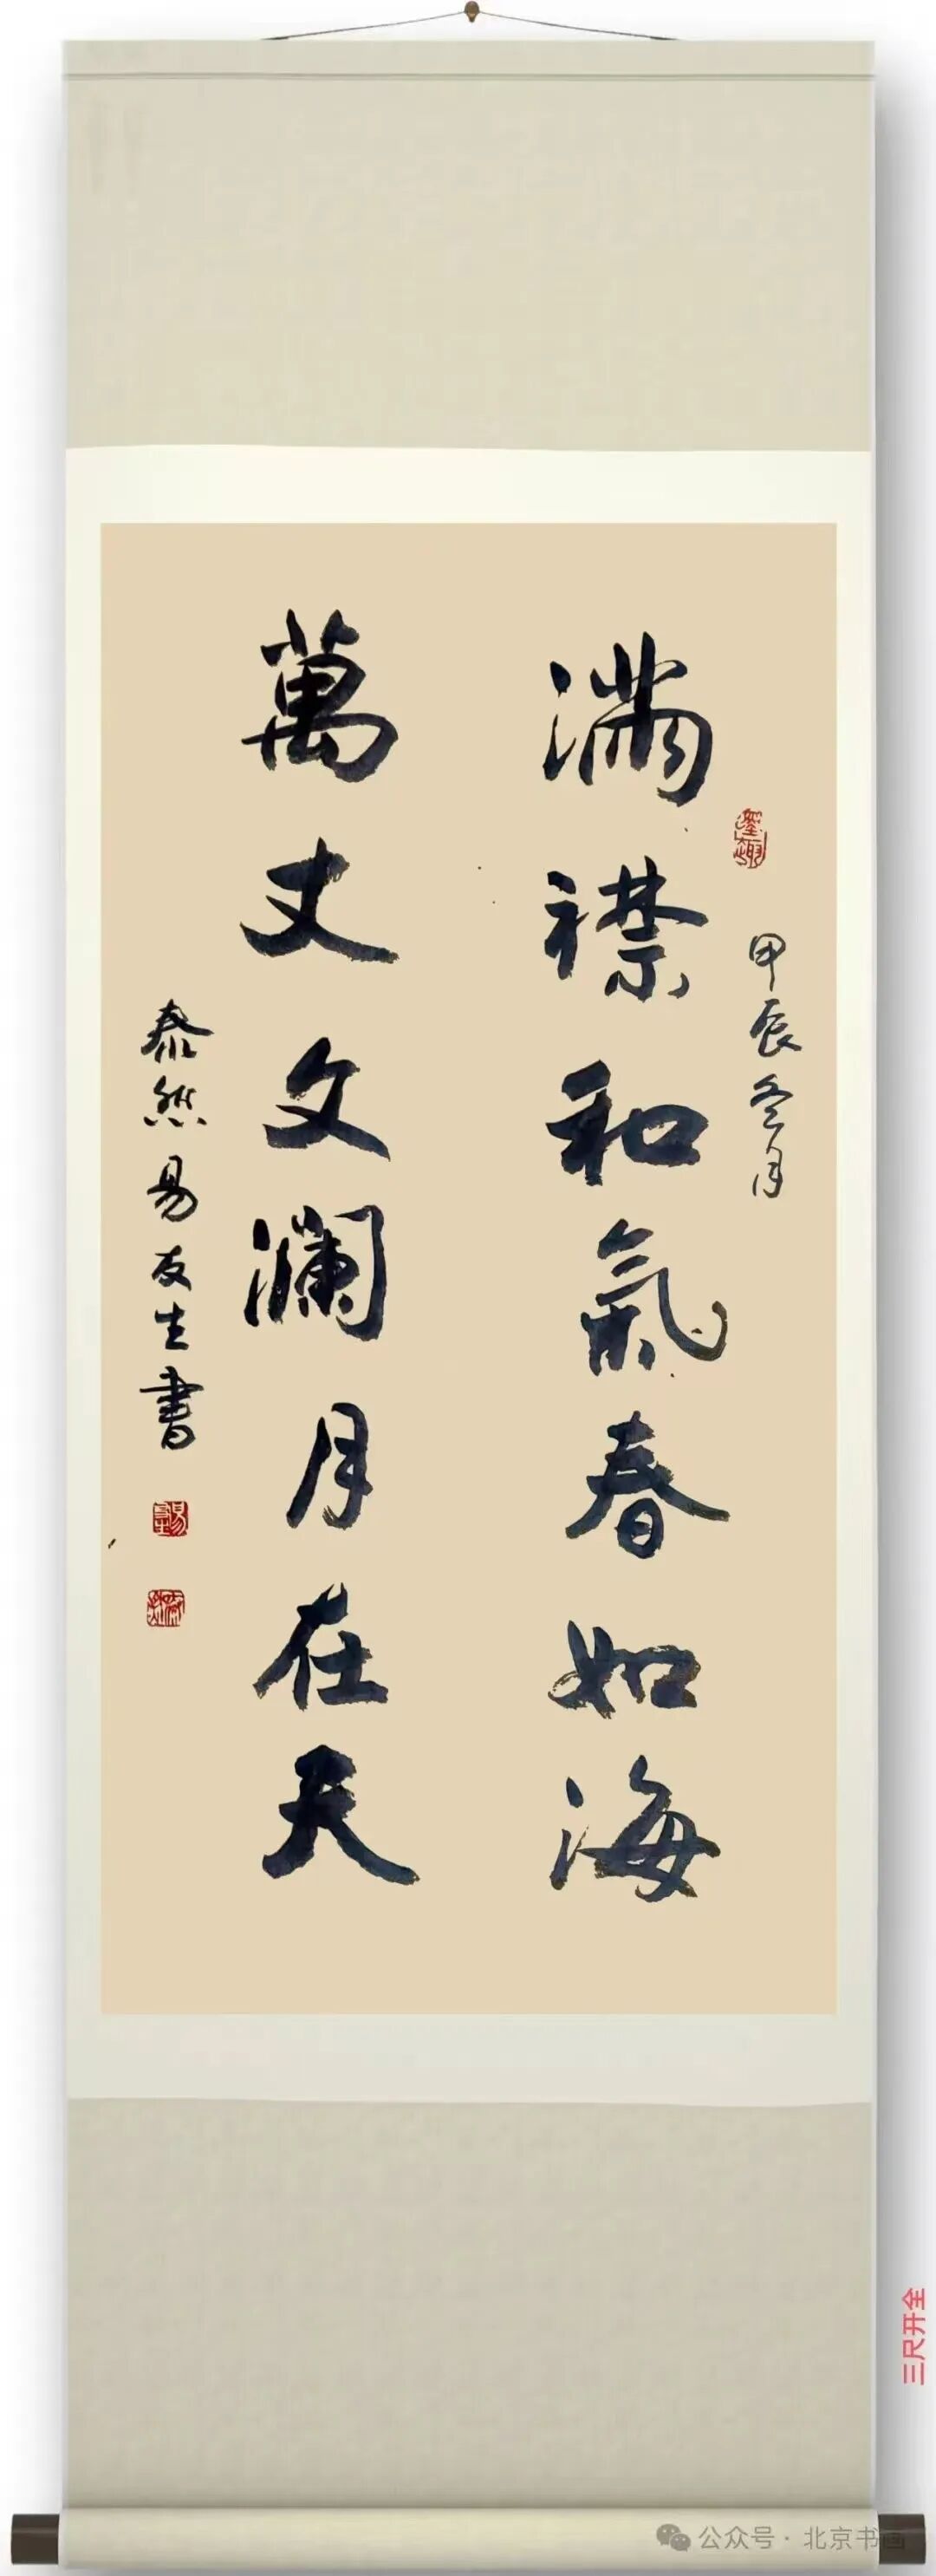 甲辰冬月
滿襟和氣春如海
萬丈文瀾月在天
泰然易友生書
三尺开全
公众号·北京书画